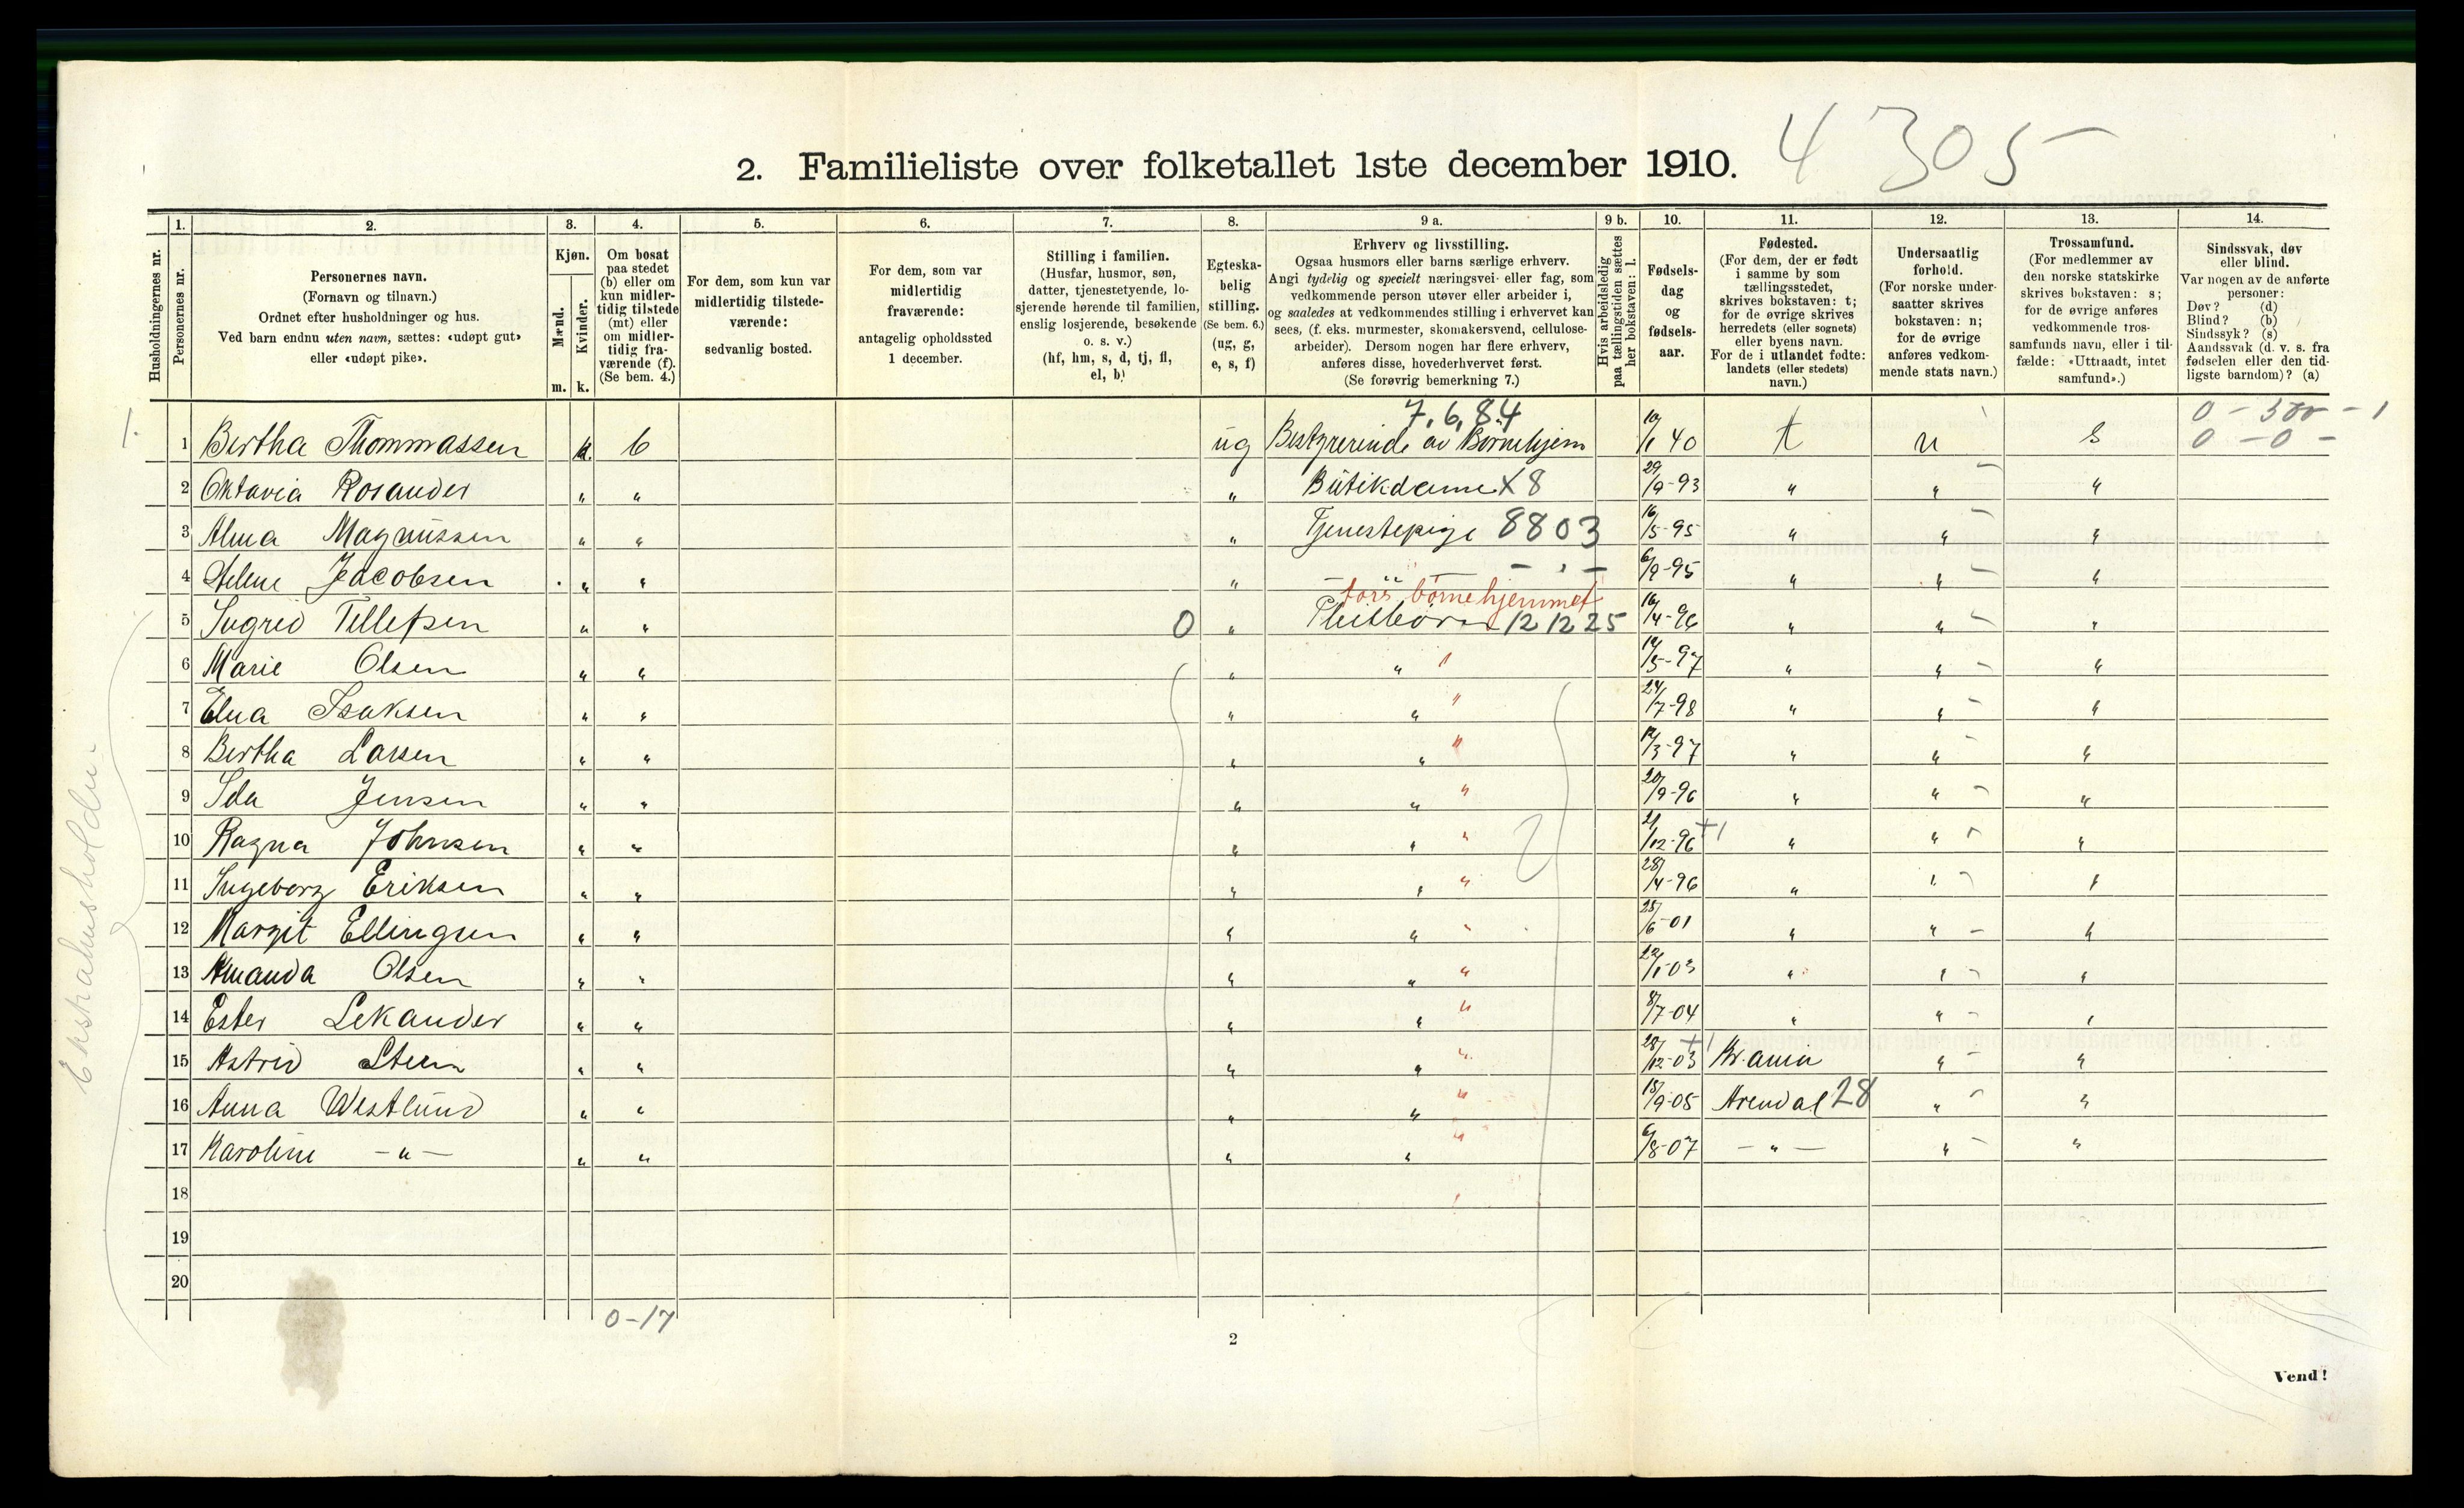 4305
2. Familieliste over folketallet 1ste december 1910.
1. 2. 3. 4. 5. 6. 7. 8. 9 a. 9 b. 10. 11. 12. 13. 14.
Husholdningernes nr.
Personernes nr.
Personernes navn.
(Fornavn og tilnavn.)
Ordnet efter husholdninger og hus.
Ved barn endnu uten navn, sættes: «udøpt gut»
eller «udøpt pike».
Kjøn.
Mænd.
Kvinder.
m. k.
Om bosat
paa stedet
(b) eller om
kun midler-
tidig tilstede
(mt) eller
om midler-
tidig fra-
værende (f).
(Se bem. 4.)
For dem, som kun var
midlertidig tilstede-
værende:
sedvanlig bosted.
For dem, som var
midlertidig
fraværende:
antagelig opholdssted
1 december.
Stilling i familien.
(Husfar, husmor, søn,
datter, tjenestetyende, lo-
sjerende hørende til familien,
enslig losjerende, besøkende
o. s. v.)
(hf, hm, s, d, tj, fl,
el, b)
Egteska-
belig
stilling.
(Se bem. 6.)
(ug, g,
e, s, f)
Erhverv og livsstilling.
Ogsaa husmors eller barns særlige erhverv.
Angi tydelig og specielt næringsvei eller fag, som
vedkommende person utøver eller arbeider i,
og saaledes at vedkommendes stilling i erhvervet kan
sees, (f. eks. murmester, skomakersvend, cellulose-
arbeider). Dersom nogen har flere erhverv,
anføres disse, hovederhvervet først.
(Se forøvrig bemerkning 7.)
Hvis arbeidsledig
paa tællingstiden sættes
her bokstaven: l.
Fødsels-
dag
og
fødsels-
aar.
Fødested.
(For dem, der er født
i samme by som
tællingsstedet,
skrives bokstaven: t;
for de øvrige skrives
herredets (eller sognets)
eller byens navn.
For de i utlandet fødte:
landets (eller stedets)
navn.)
Undersaatlig
forhold.
(For norske under-
saatter skrives
bokstaven: n;
for de øvrige
anføres vedkom-
mende stats navn.)
Trossamfund.
(For medlemmer av
den norske statskirke
skrives bokstaven: s;
for de øvrige anføres
vedkommende tros-
samfunds navn, eller i til-
fælde: «Uttraadt, intet
samfund».)
Sindssvak, døv
eller blind.
Var nogen av de anførte
personer:
Døv? (d)
Blind? (b)
Sindssyk? (s)
Aandssvak (d. v. s. fra
fødselen eller den tid-
ligste barndom)? (a)
7.6.84 0 - 300 - 1
1. 1 Bertha Thommassen k. b ug Bestyrerinde av Børnehjem 10/1 40 t n s 0 - 0 -
2 Oktavia Rosander " " " Butikdame X8 29/9-93 " " "
3 Alma Magnussen " " " Tjenestepige 8803 16/5-95 " " "
4 Helene Jacobsen " " " — " — 6/9-95 " " "
børnehjemmet
5 Ingrid Tellefsen " " 0 " Pleiebørn 12 12 25 16/4-96 " " "
6 Marie Olsen " " " " 14/5-97 " " "
7 Elna Isaksen " " " " " 24/7-98 " " "
8 Bertha Larsen " " " " " 12/3-97 " " "
9 Ida Jensen " " " " " 20/9-96 " " "
10 Ragna Johnsen " " " " " 21/12-96 +1 " " "
11 Ingeborg Eriksen " " " " " 28/4-96 " " "
12 Margit Ellingsen " " " " " 25/6-01 " " "
13 Amanda Olsen " " " " " 22/1-03 " " "
14 Ester Lekander " " " " " 8/7-04 " " "
15 Astrid Steen " " " " " 28/12-03 +1 Kr.ania " "
16 Anna Westlund " " " " " 15/9-05 Arendal 28 " "
17 Karoline — " — " " " " " 6/8-07 — " — " "
18
19
20
Ekstrahusholdn.
0-17
2
Vend!